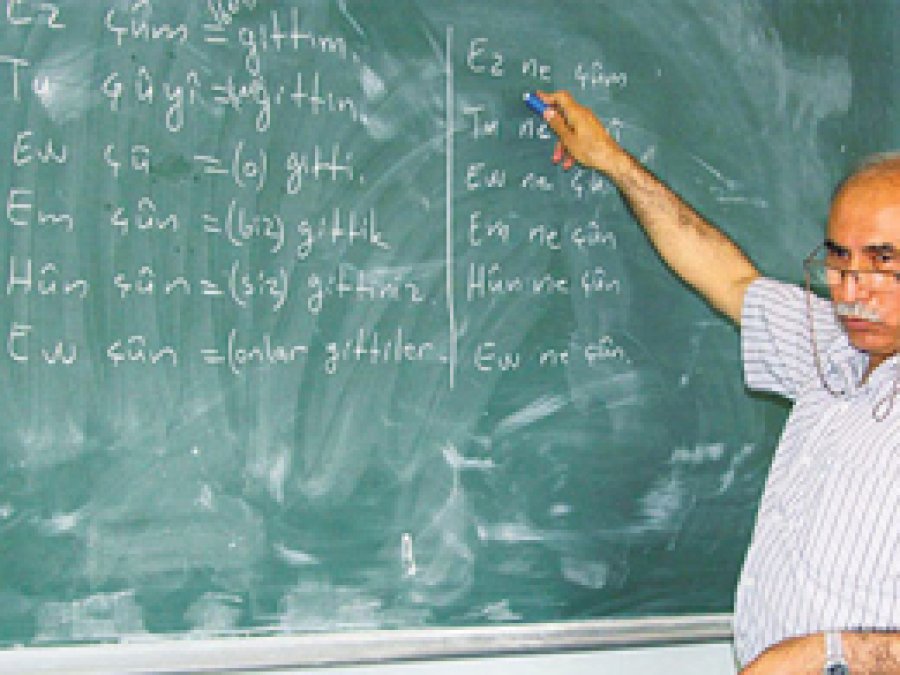 Ez çûm = gittim.
Tu çûyî = gittin.
Ew çû = (o) gitti.
Em çûn = (biz) gittik
Hûn çûn = (siz) gittiniz.
Ew çûn = (onlar gittiler.
Ez ne çûm
Tu ne
Ew ne çû
Em ne çûn
Hûn ne çûn
Ew ne çûn.